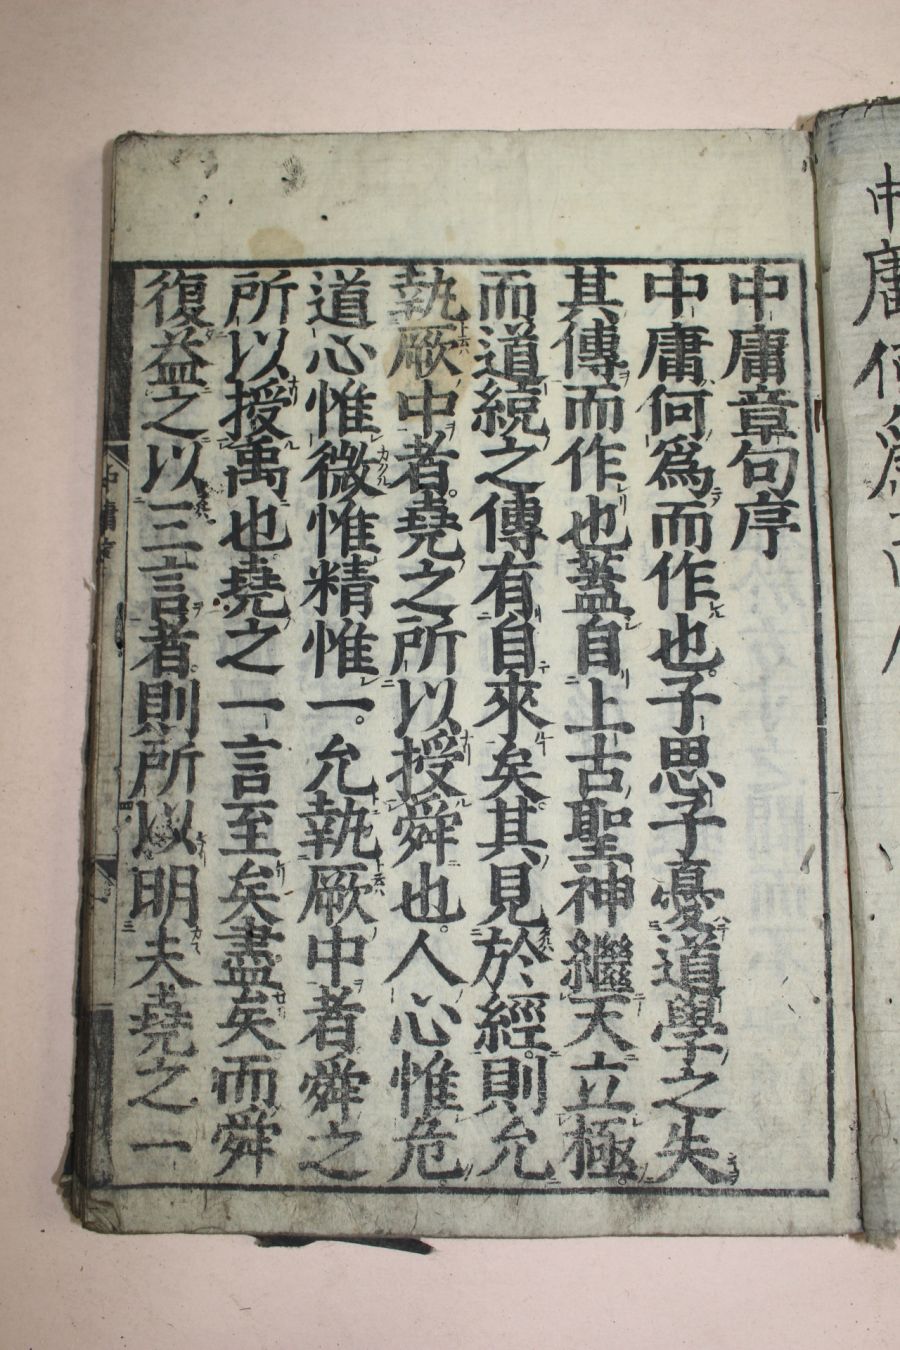 中庸章句序
中庸何爲而作也子思子憂道學之失
其傳而作也蓋自上古聖神繼天立極
而道統之傳有自來矣其見於經則允
執厥中者堯之所以授舜也人心惟危
道心惟微惟精惟一允執厥中者舜之
所以授禹也堯之一言至矣盡矣而舜
復益之以三言者則所以明夫堯之一
中庸序
中庸何爲而